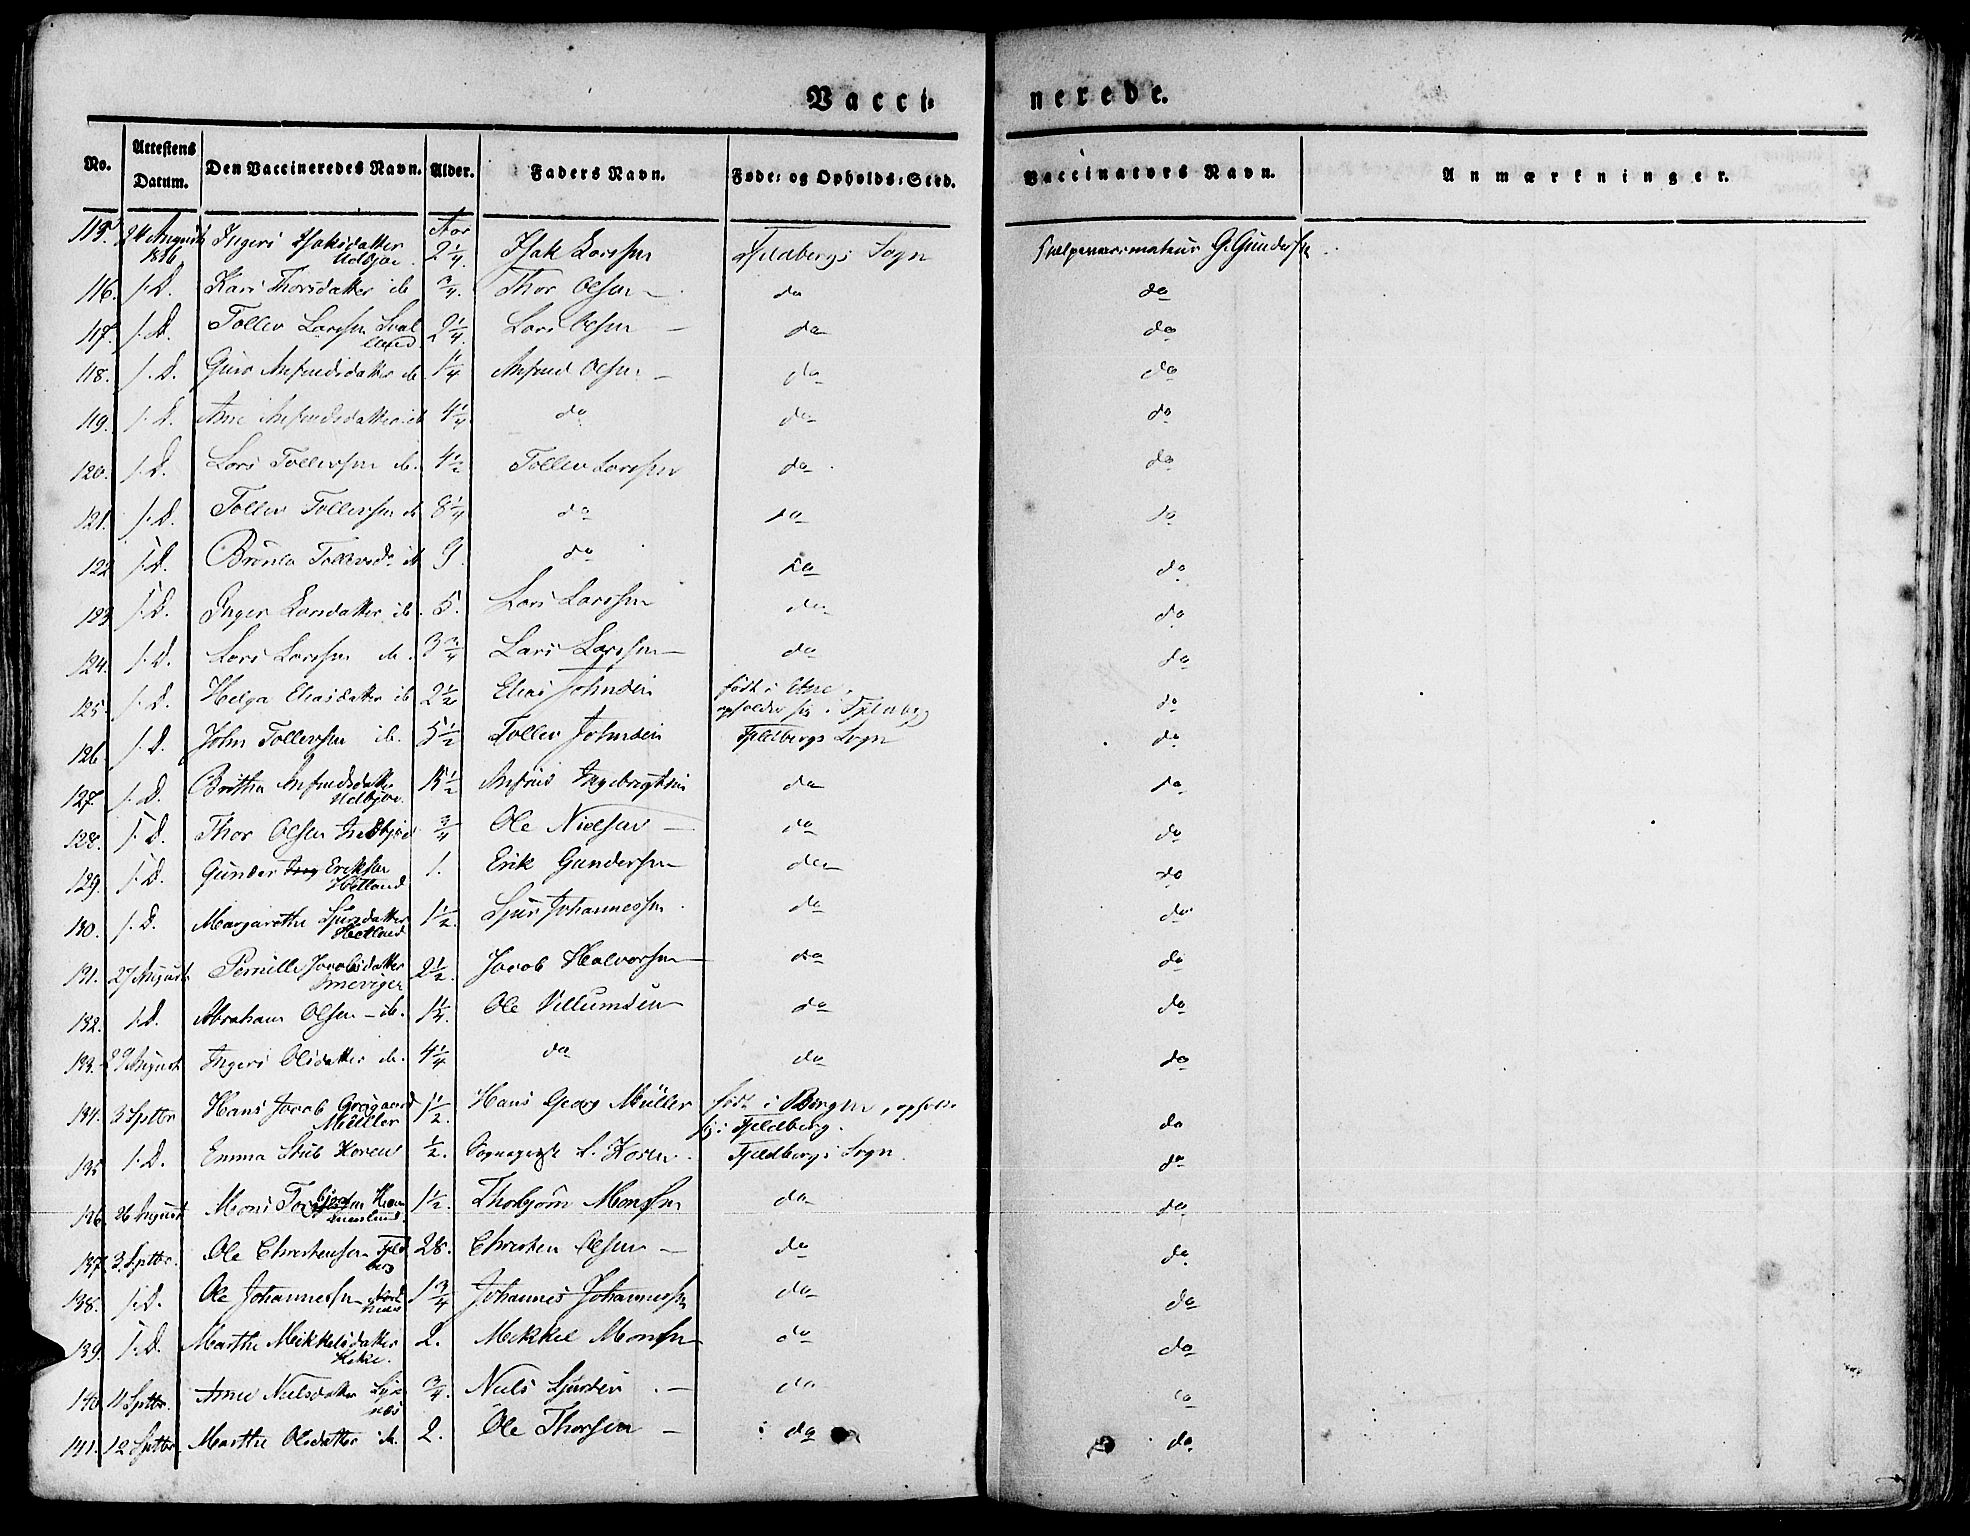 Vacci-nerede.
No. | Attestens Datum. | Den Vaccineredes Navn. | Alder. | Faders Navn. | Føde- og Opholds-Sted. | Vaccinators Navn. | Anmærkninger.
115. | 24 August 1836 | Ingeri Isaksdatter Udbjoe | Aar 2 1/4. | Isak Larssen | Fjeldbergs Sogn | Hjelpevaccinateur G. Gundersen
116. | s. D. | Kari Thorsdatter ib | 3/4. | Thor Olsen | do | do
117. | s. D. | Tollev Larssen | 2 1/4. | Lars Olsen | do | do
118. | s. D. | Guro Anfindsdatter ib | 1 1/4 | Anfind Olsen | do | do
119. | s. D. | Ane Anfindsdatter ib | 4 1/4 | do | do | do
120. | s. D. | Lars Tollevsen ib. | 4 1/2 | Tollev Larssen | do | do
121. | s. D. | Tollev Tollevsen ib | 8 1/4 | do | do | do
122 | s. D. | Tollevsdr ib | 9. | do | do | do
123 | s. D. | Inger Larsdatter ib. | 5. | Lars Larssen | do | do
124. | s. D. | Lars Larssen ib. | 3 3/4 | Lars Larssen | do | do
125. | s. D. | Helga Eliasdatter ib | 2 1/2 | Elias Johnsen | født i Etne, opholder sig i Fjelberg | do
126. | s. D. | John Tollevsen ib. | 5 1/2 | Tollev Johnsen | Fjeldbergs Sogn | do
127. | s. D. | Britha Anfindsdatter Udbjoe. | 1 1/2 | Anfind Ingebrigtsen | do | do
128. | s. D. | Thor Olsen | 3/4 | Ole Nielsen | do | do
129. | s. D. | Gunder Eriksen Hetland | 1. | Erik Gundersen | do | do
130. | s. D. | Margarethe Sjursdatter Hetland | 1 1/2. | Sjur Johannessen | do | do
131. | 27 August | Pernille Jacobsdatter | 2 1/2. | Jacob Halvorsen | do | do
132. | s. D. | Abraham Olsen ib. | 1 1/4. | Ole Villumsen | do | do
133. | 29 August | Ingeri Olsdatter ib. | 4 1/4 | do | do | do
134. | 5 Septbr | Hans Jacob Grøgaard Müller | 1 1/2. | Hans Georg Müller | født i Bergen, opholder sig i Fjeldberg. | do
135 | s. D. | Emma Stub Koren | 1/2. | Sognepræst Koren | Fjeldbergs Sogn. | do
136. | 26 August | Mons | 1 1/2. | Thorbjørn Monsen | do | do
137. | 3. Septbr. | Ole Christensen Fjeldberg | 28. | Christen Olsen | do | do
138. | s. D. | Ole Johannessen | 1 3/4 | Johannes Johannessen | do | do
139. | s. D. | Marthe Mikkelsdatter | 2. | Mikkel Monsen | do | do
140. | 11 Septbr. | Ane Nielsdatter | 3/4. | Niels Sjursen | do | do
141. | 12 Septbr. | Marthe Olsdatter ib. | 2. | Ole Thorsen | do | do